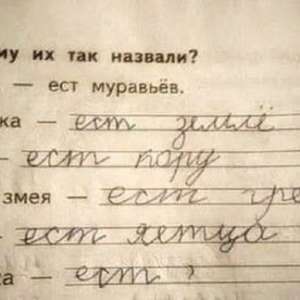 му их так назвали?
— ест муравьёв.
ка — ест землё
— ест кору
змея — ест гре
— ест яетца
ка — ест ?